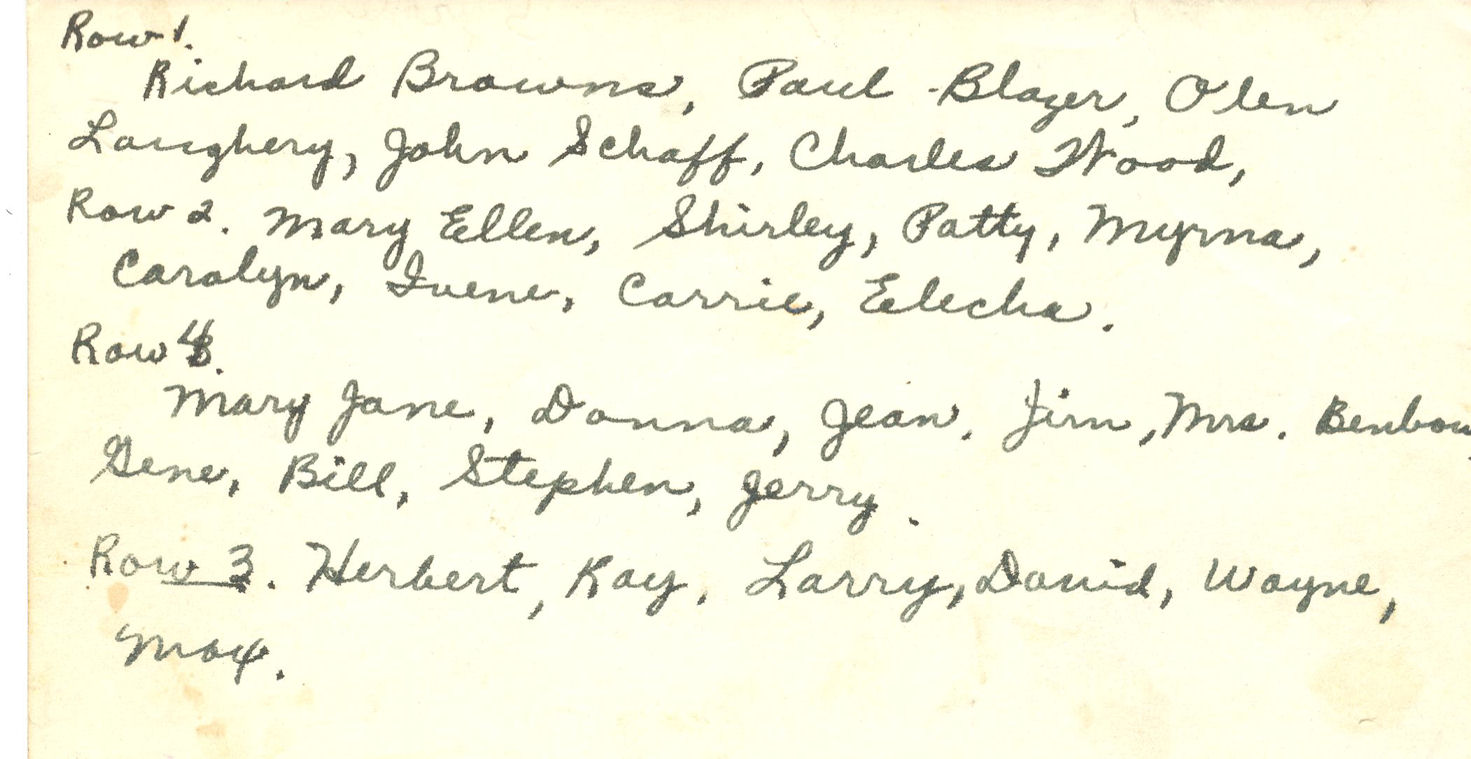 Row 1.
Richard Browns, Paul Blazer, Olen
Laughery, John Schaff, Charles Wood,
Row 2. Mary Ellen, Shirley, Patty, Myrna,
Carolyn, Ivene, Carrie,
Row 4.
Mary Jane, Donna, Jean, Jim, Mrs. Benbow,
Gene, Bill, Stephen, Jerry.
Row 3. Herbert, Kay, Larry, David, Wayne,
Max.